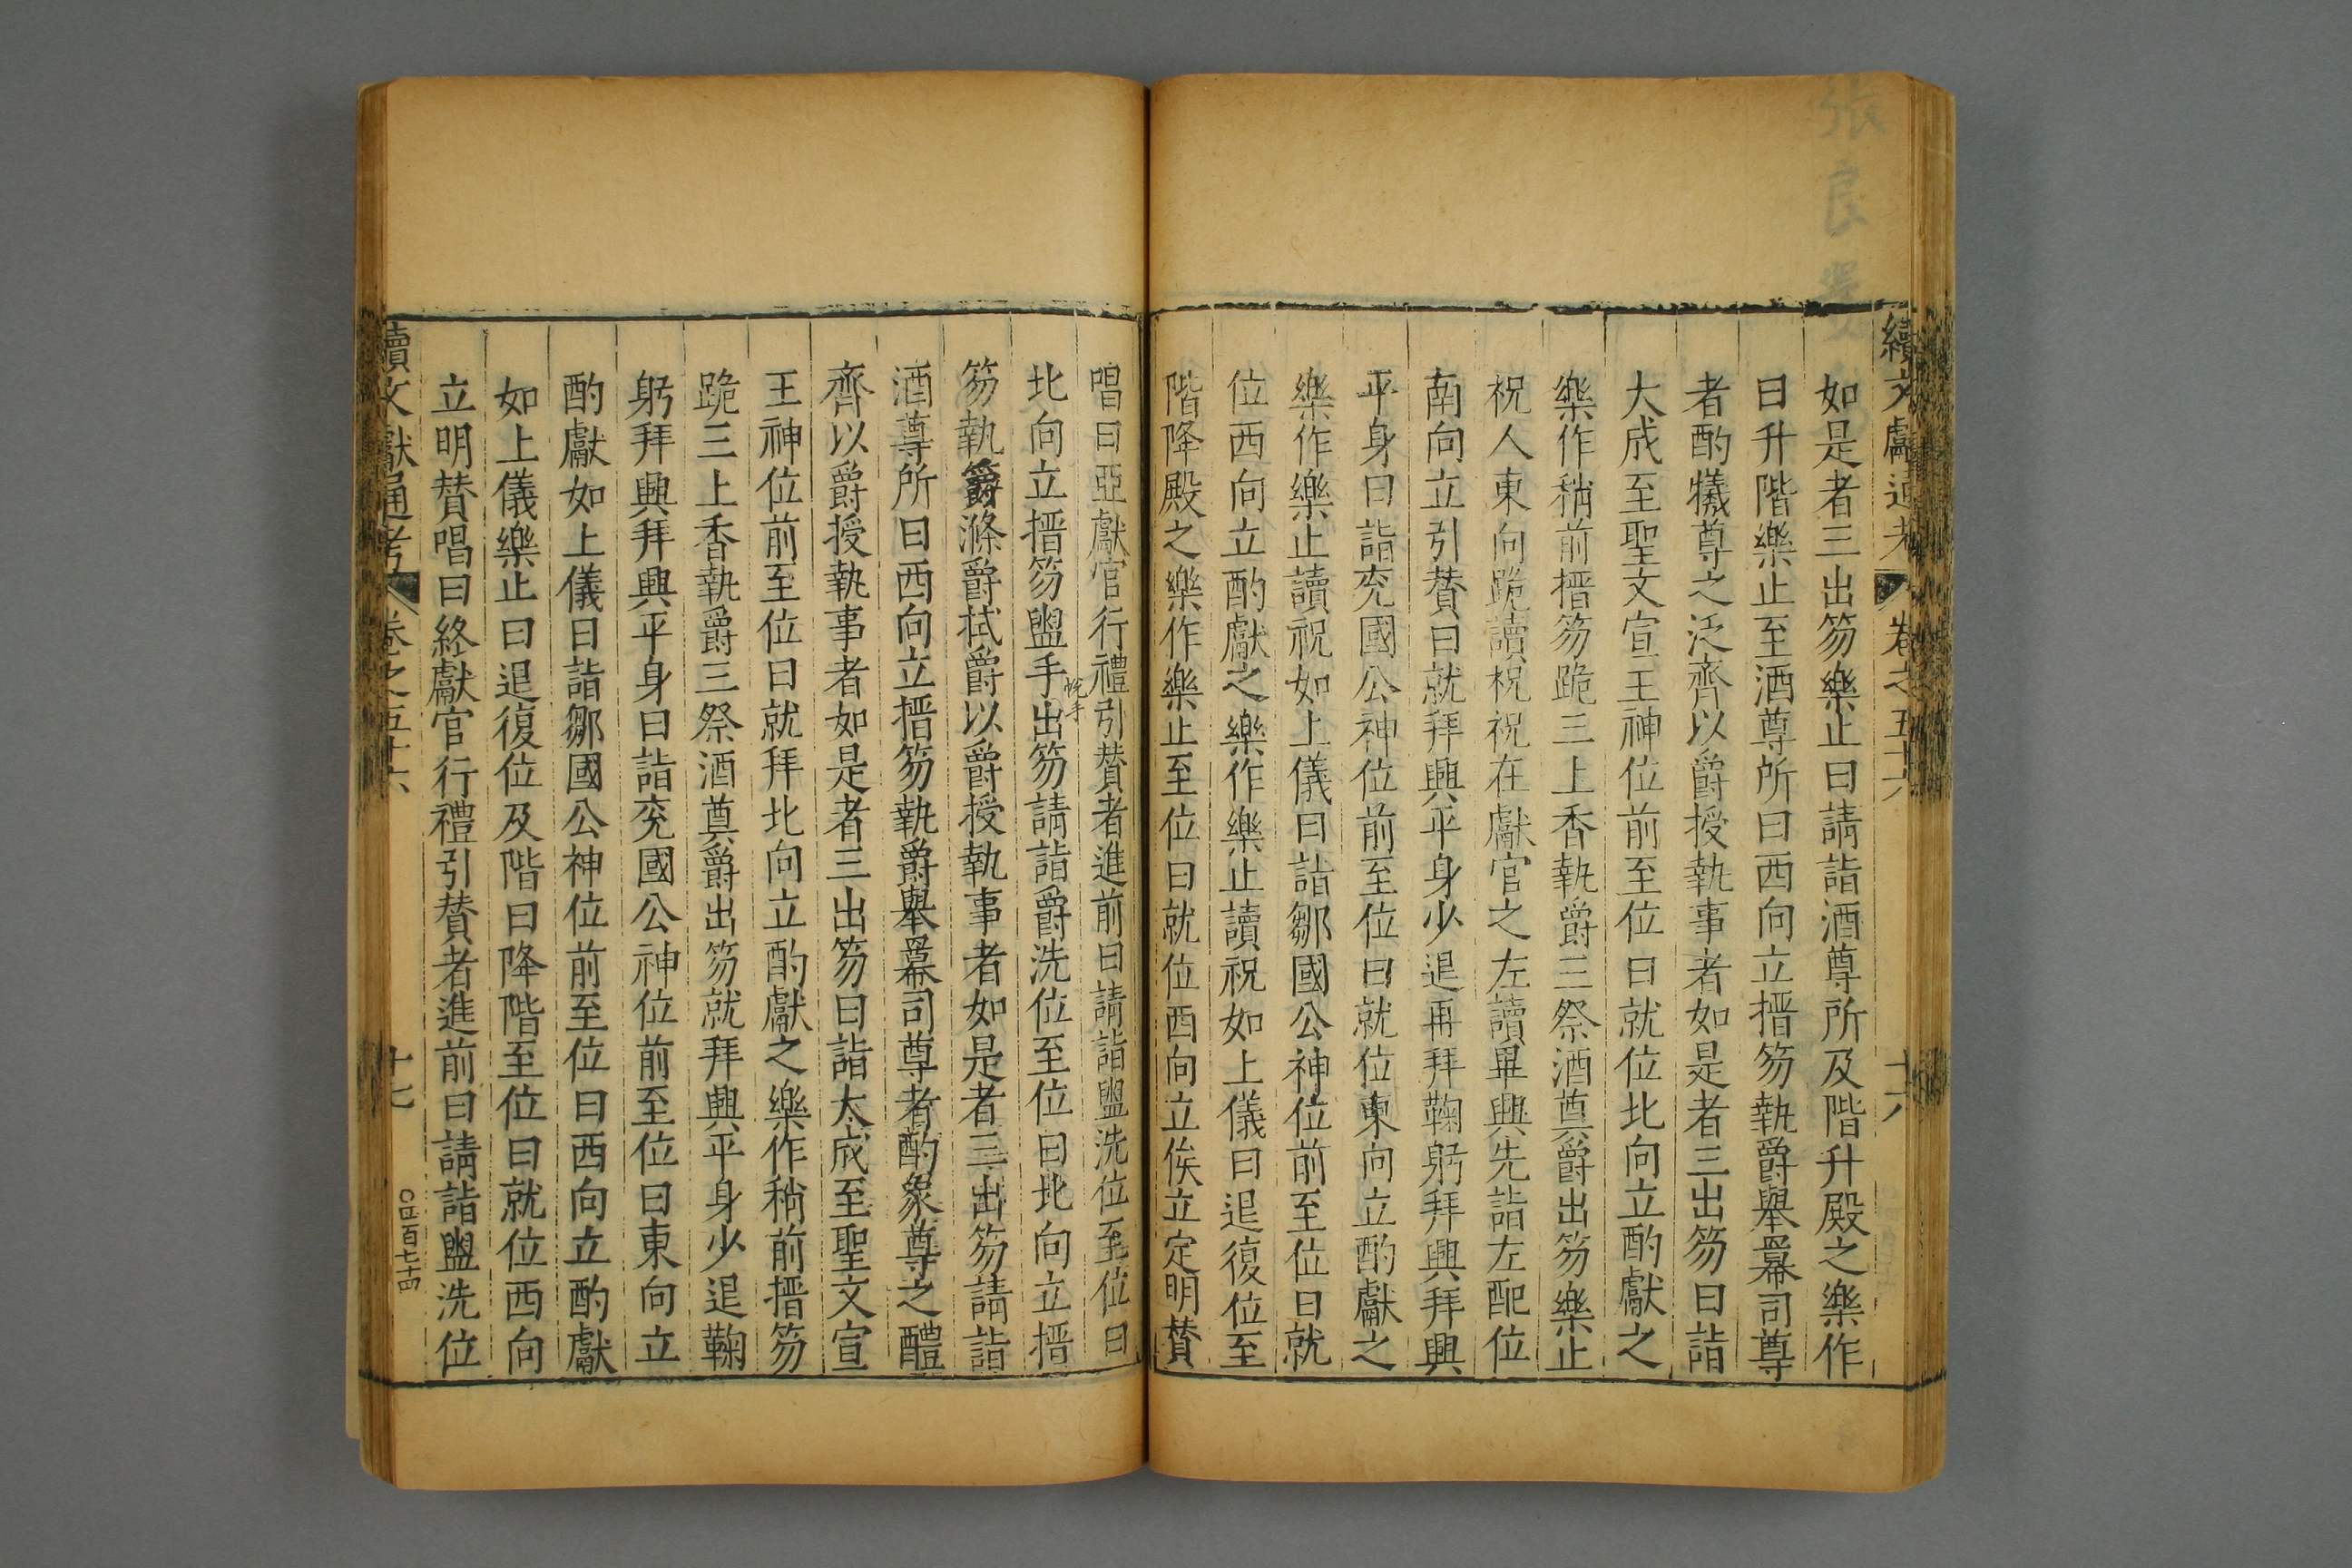 續文獻通考 卷之五十六 十六
如是者三出笏樂止曰請詣酒尊所及階升殿之樂作
曰升階樂止至酒尊所曰西向立搢笏執爵舉羃司尊
者酌犧尊之泛齊以爵授執事者如是者三出笏曰詣
大成至聖文宣王神位前至位曰就位北向立酌獻之
樂作稍前搢笏跪三上香執爵三祭酒奠爵出笏樂止
祝人東向跪讀祝祝在獻官之左讀畢興先詣左配位
南向立引賛曰就拜興平身少退再拜鞠躬拜興拜興
平身曰詣兖國公神位前至位曰就位東向立酌獻之
樂作樂止讀祝如上儀曰詣鄒國公神位前至位曰就
位西向立酌獻之樂作樂止讀祝如上儀曰退復位至
階降殿之樂作樂止至位曰就位西向立俟立定明賛
唱曰亞獻官行禮引賛者進前曰請詣盥洗位至位曰
北向立搢笏盥手帨手出笏請詣爵洗位至位曰北向立搢
笏執爵滌爵拭爵以爵授執事者如是者三出笏請詣
酒尊所曰西向立搢笏執爵舉羃司尊者酌象尊之醴
齊以爵授執事者如是者三出笏曰詣大成至聖文宣
王神位前至位曰就拜北向立酌獻之樂作稍前搢笏
跪三上香執爵三祭酒奠爵出笏就拜興平身少退鞠
躬拜興拜興平身曰詣兖國公神位前至位曰東向立
酌獻如上儀曰詣鄒國公神位前至位曰西向立酌獻
如上儀樂止曰退復位及階曰降階至位曰就位西向
立明賛唱曰終獻官行禮引賛者進前曰請詣盥洗位
續文獻通考 卷之五十六 十七
百七十四
張良